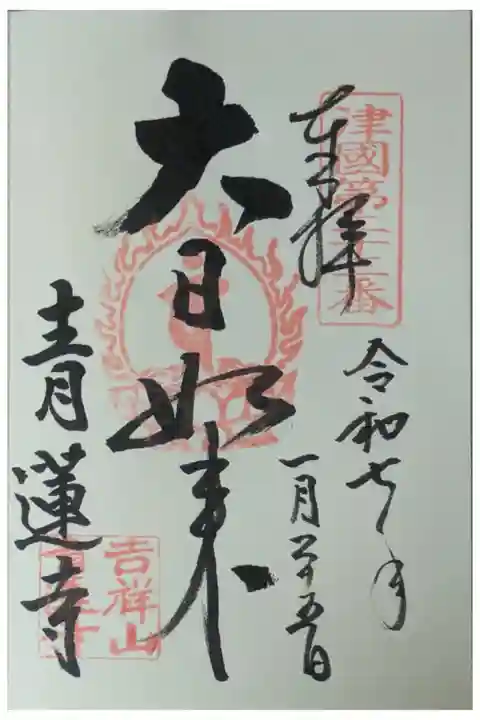 奉拝
津國第二十三番
令和七年
一月二十五日
大日如来
青蓮寺
吉祥山
青蓮寺